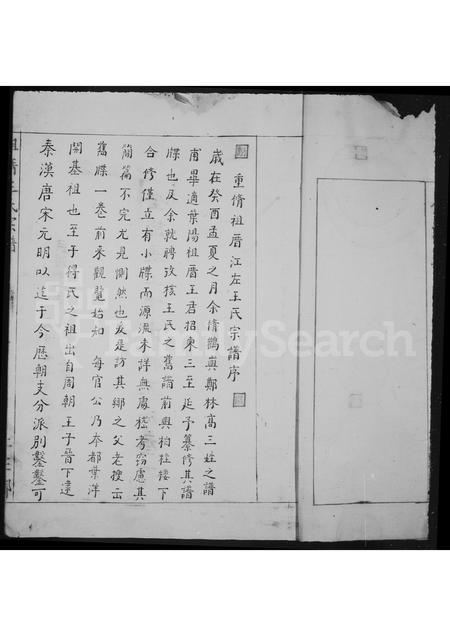 重脩祖厝江左王氏宗譜序
歲在癸酉孟夏之月余脩鸛與鄭林高三姓之譜
甫畢適葉陽祖厝王君招來三至延予纂修其譜
牒也及余就聘攷核王氏之舊譜前與柏柱樓下
合修僅立有小牒而源流未詳無處稽考窃慮其
簡篇不完尤見惻然也爰是訪其鄉之父老搜出
舊牒一卷前來觀覽始知 每官公乃本都葉洋
開基祖也至于得氏之祖出自周朝王子晉下逮
秦漢唐宋元明以迄于今歷朝支分派別鑿鑿可
祖厝王氏宗譜
FamilySearch